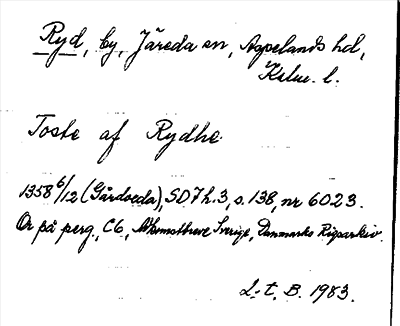 Ryd, by, Järeda sn, Aspelands hd,
Kalm. l.
Toste af Rydhe.
1358 6/12 (Gårdveda), SD 7 h. 3, s. 138, nr 6023.
Or på perg., C6, Sverige, Danmarks Rigsarkiv.
L-t, B. 1983.